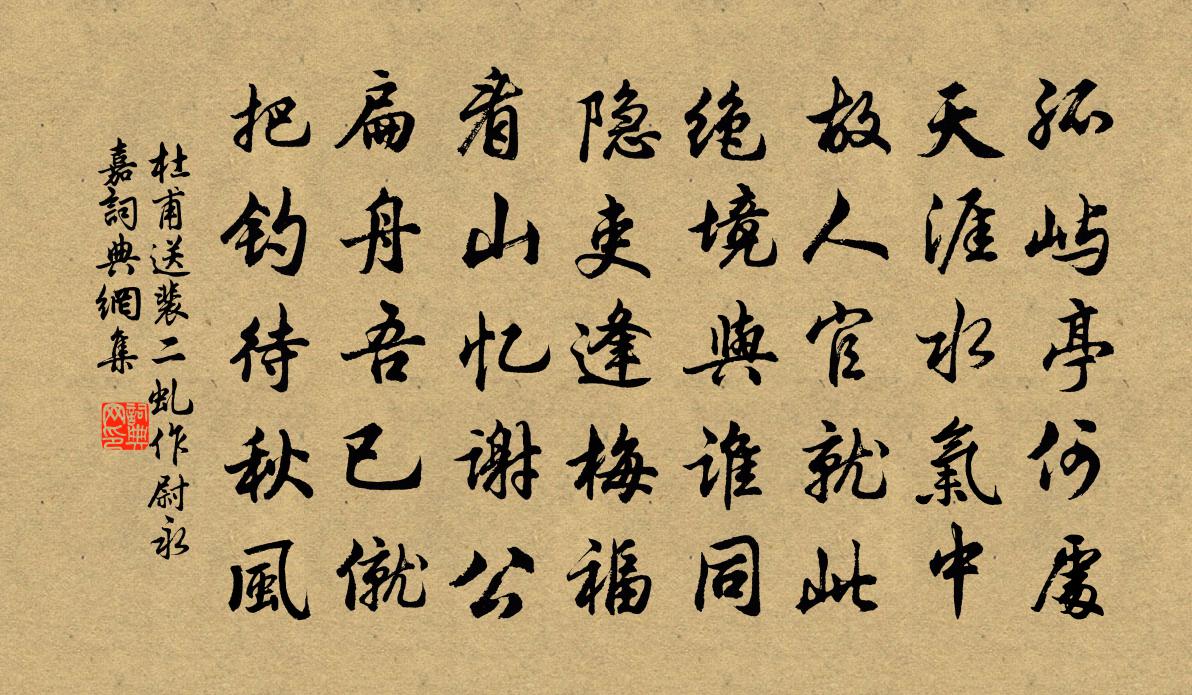 孤屿亭何處
天涯水氣中
故人官就此
绝境與谁同
隐吏逢梅福
看山忆谢公
扁舟吾已僦
把钓待秋風
杜甫送裴二虬作尉永
嘉詞典網集
詞典网印